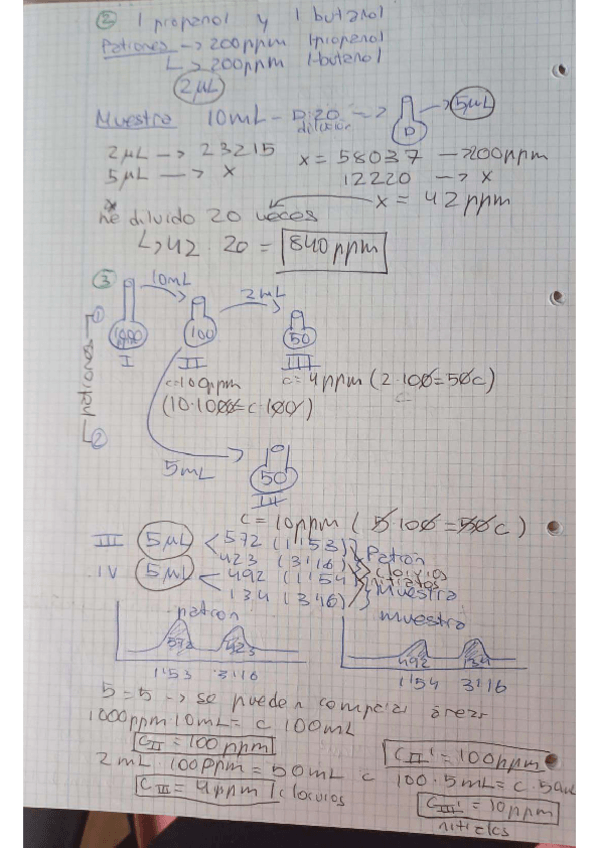 ② 1 propanol y 1 butanol
Patrones -> 200ppm 1-propanol
L> 200ppm 1-butanol
2µL
Muestra 10mL - D:20 -> D -> 5µL
dilución
2µL -> 23215 x = 58037 -> 200ppm
5µL -> x 12220 -> x
x = 42ppm
he diluido 20 veces
L> 42 · 20 = 840ppm
③
10mL 2mL
Patrones ①
1000 100 50
I II III
c=100ppm c= 4ppm (2·100=50c)
(10·1000=c·100)
②
5mL
50
IV
c = 10ppm (5·100=50c)
III 5µL < 572 (1'53) } Patrón
423 (3'16)
IV 5µL < 492 (1'54) cloruros
134 (3'16) } Muestra
patron muestra
572 423 492 134
1'53 3'16 1'54 3'16
5=5 -> se pueden comparar áreas
1000ppm·10mL = c 100mL
CII = 100ppm CII' = 100ppm
2mL · 100ppm = 50mL c 100·5mL = c·50mL
CIII = 4ppm cloruros CIII' = 10ppm
nitratos